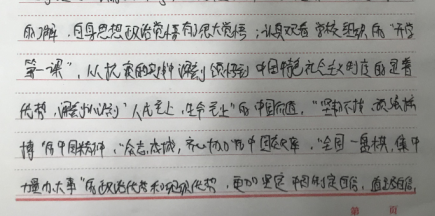 的了解，自身思想政治觉悟有很大觉悟；认真观看学校组织的"开学
第一课"，从抗疫的中深刻领悟到中国特色社会主义制度的显著
优势，深刻认识到"人民至上，生命至上"的中国价值，"坚韧不拔 顽强拼
搏"的中国精神，"众志成城，齐心协力"的中国，"全国一盘棋，集中
力量办大事"的政治优势和组织优势，更加坚定中国制定自信，道路自信，
第 页